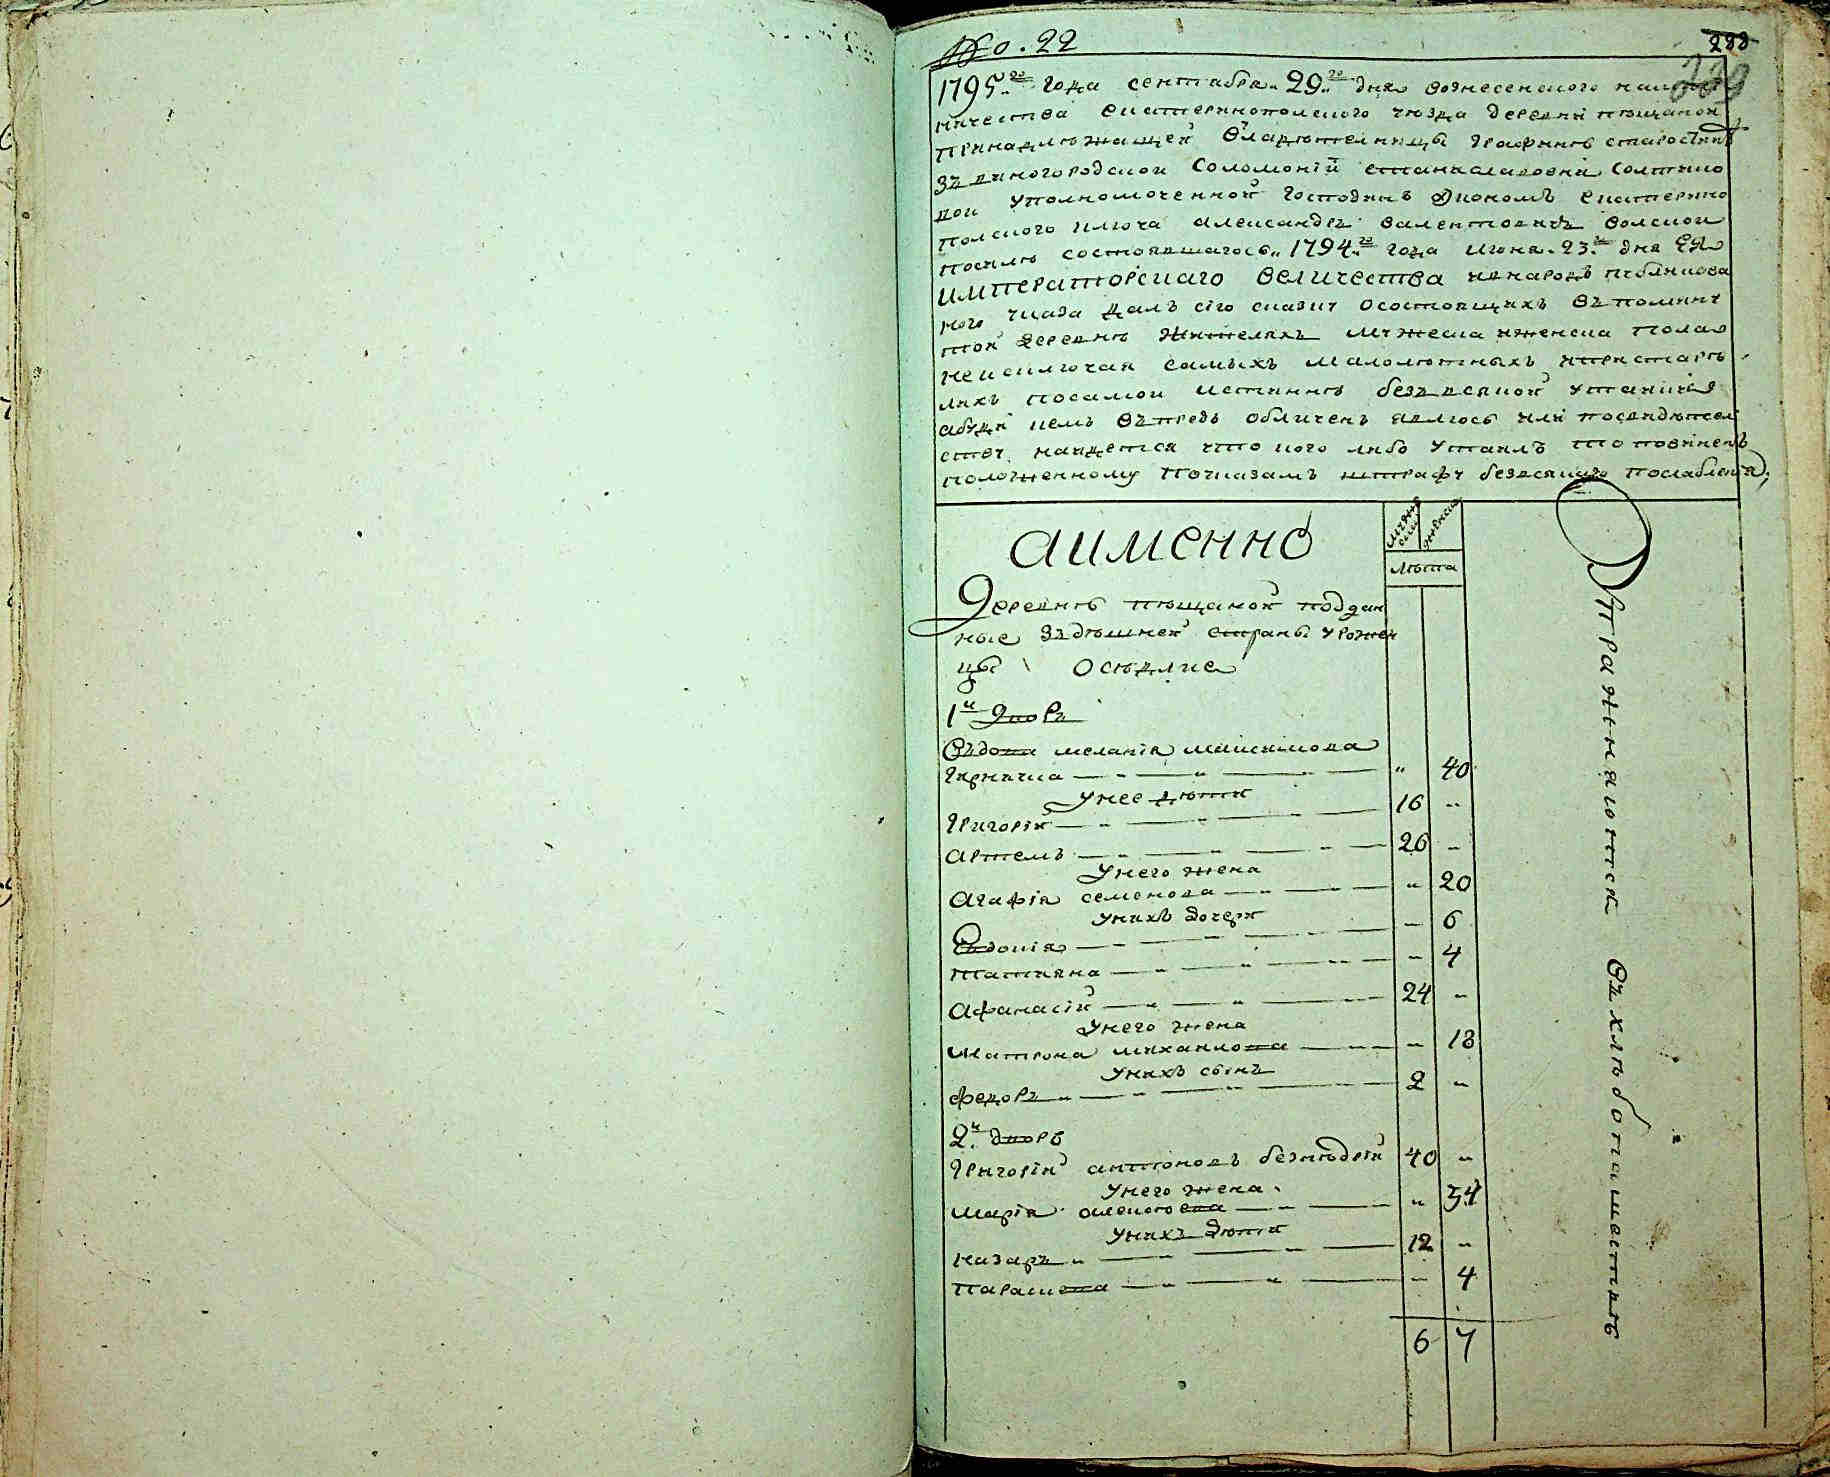 No. 22
288
289
1795.го года сентабра. 29.го дня вознесенского намест
ничества екатеринопольского уезда деревни пещаной
принадлежащей владетелницы графинѣ старостинѣ
звѣниногородской Соломонiи станиславовни Солтико
вои уполномоченной господинъ економъ екатерино
полского ключа александръ валентовичъ волской
посилѣ состоявшагось 1794.го года июня. 23.го дня Ея
императорскаго величества
указа далъ сiю сказку осостоящихъ въ помяну
той деревнѣ жителяхъ мужеска иженска пола
неисключая самыхъ малолѣтныхъ ипрестарѣ
лихъ посамой истиннѣ безъ всякой утайки
абуди чемъ въпредь обличенъ явлюсь или посвидѣтел
ству найдется что кого либо утаилъ то повиненъ
положенному поуказамъ штрафу безвсякаго послабленiя,
аименно
мужеска
женска
лѣта
Деревнѣ пещаной поддан
ные здѣшней страны урожен
цы осѣдлие
1й Дворъ
Въдова меланiя максимова
Гарначка " 40
Унее дети
Григорiй 16 "
артемъ 26 "
Унего жена
Агафiя семенова " 20
Унихъ дочери
Евдокiя " 6
татияна " 4
Афанасiй 24 "
Унего жена
Матрона михаилова " 18
Унихъ сынъ
федоръ 2 "
2й дворъ
Григорiй антоновъ 40 "
Унего жена
Марiя " 34
Унихъ дети
Назаръ 12 "
Параскева " 4
6 7
Упражняются въ хлѣбопашествѣ